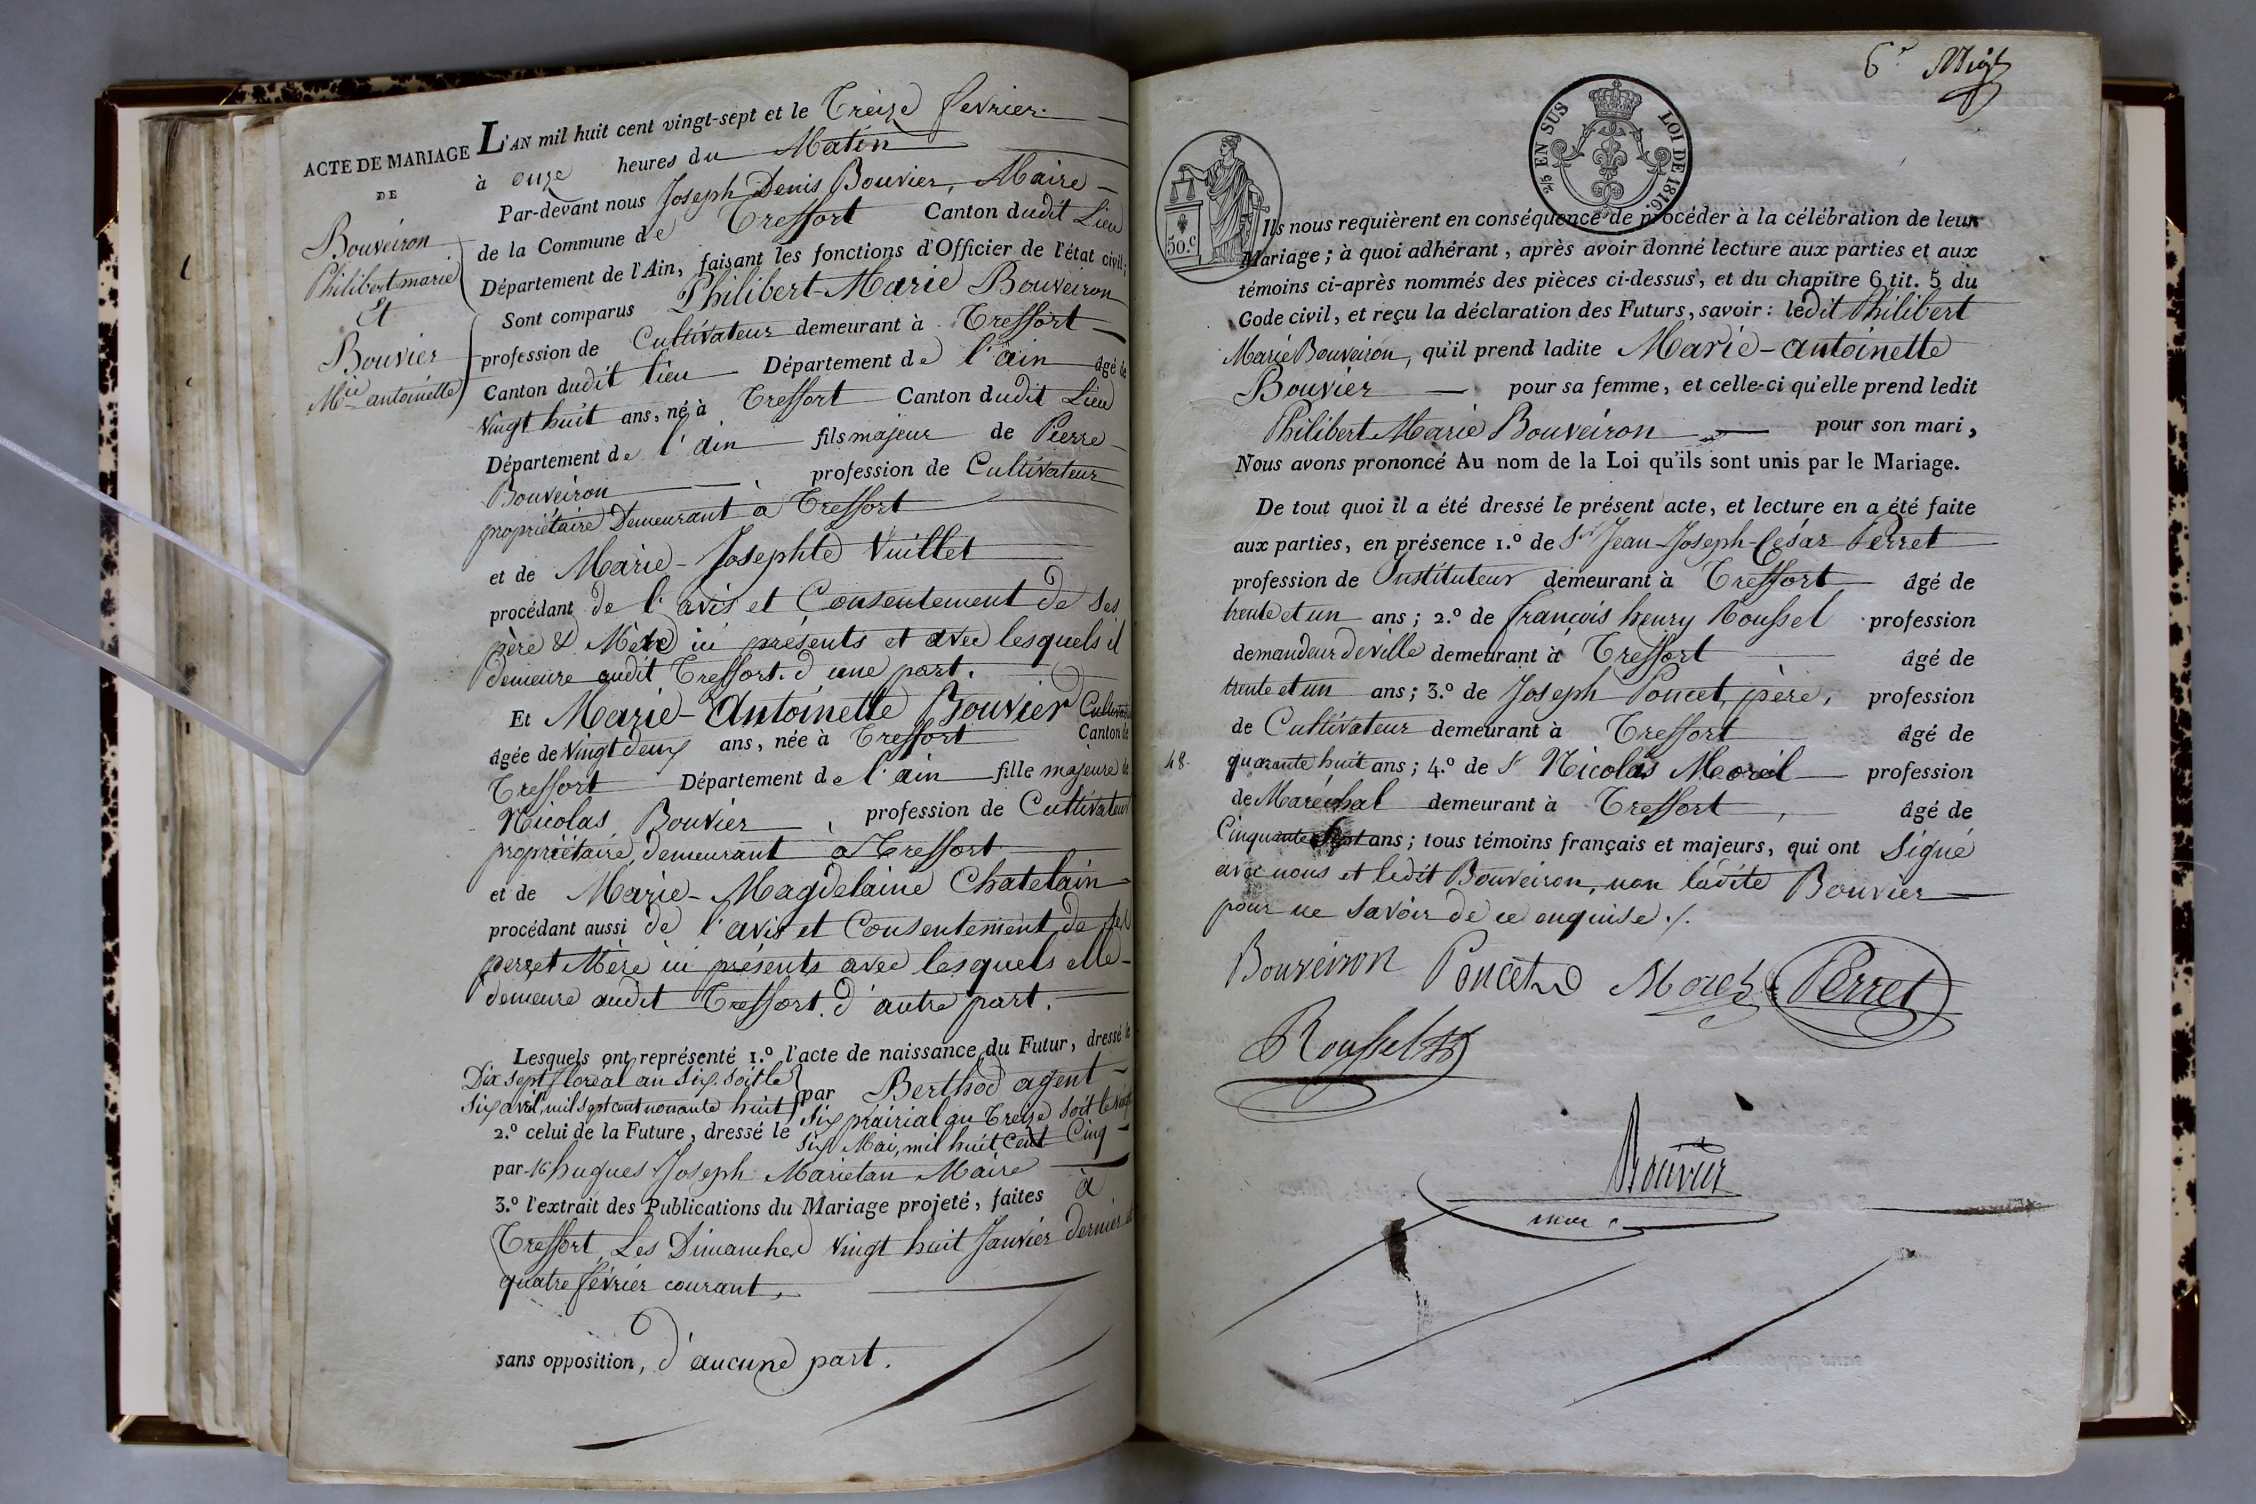 ACTE DE MARIAGE
DE
Bouveiron
Philibert marie
Et
Bouvier
Mie antoinette
L'AN mil huit cent vingt-sept et le Treize fevrier
à onze heures du Matin
Par-devant nous Joseph Denis Bouvier, Maire
de la Commune de Treffort Canton dudit Lieu
Département de l'Ain, faisant les fonctions d'Officier de l'état civil;
Sont comparus Philibert-Marie Bouveiron
profession de Cultivateur demeurant à Treffort
Canton dudit lieu Département de l'ain âgé de
vingt huit ans, né à Treffort Canton dudit Lieu
Département de l'ain fils majeur de Pierre
Bouveiron profession de Cultivateur
propriétaire Demeurant à Treffort
et de Marie-Josephte Vuillet
procédant de l'avis et Consentement de ses
père & Mère ici présents et avec lesquels il
demeure audit Treffort. d'une part.
Et Marie-Antoinette Bouvier
âgée de vingt deux ans, née à Treffort Canton de
Treffort Département de l'ain fille majeure de
Nicolas Bouvier, profession de Cultivateur
propriétaire, demeurant à Treffort
et de Marie-Magdelaine Chatelain
procédant aussi de l'avis et Consentement de ses
per et Mère ici présents avec lesquels elle
demeure audit Treffort. d'autre part.
Lesquels ont représenté 1.º l'acte de naissance du Futur, dressé le
Dix sept floréal an six. soit le
six avril, mil sept cent nonante huit par Berthod agent
2.º celui de la Future, dressé le six prairial an Treize soit le vingt
six Mai, mil huit Cent Cinq
par M hugues Joseph Marietan Maire
3.º l'extrait des Publications du Mariage projeté, faites à
Treffort, Les Dimanches vingt huit Janvier dernier et
quatre février courant,
sans opposition, d'aucune part.
6e
2/5 EN SUS
LOI DE 1816.
50.c
Ils nous requièrent en conséquence de procéder à la célébration de leur
Mariage; à quoi adhérant, après avoir donné lecture aux parties et aux
témoins ci-après nommés des pièces ci-dessus, et du chapitre 6 tit. 5 du
Code civil, et reçu la déclaration des Futurs, savoir: ledit Philibert
Marie Bouveiron, qu'il prend ladite Marie-antoinette
Bouvier pour sa femme, et celle-ci qu'elle prend ledit
Philibert Marie Bouveiron pour son mari,
Nous avons prononcé Au nom de la Loi qu'ils sont unis par le Mariage.
De tout quoi il a été dressé le présent acte, et lecture en a été faite
aux parties, en présence 1.º de Sr Jean-Joseph-César Perret
profession de Instituteur demeurant à Treffort âgé de
trente et un ans; 2.º de françois henry Roussel profession
demandeur de ville demeurant à Treffort âgé de
trente et un ans; 3.º de Joseph Poncet, père, profession
de Cultivateur demeurant à Treffort âgé de
48. quarante huit ans; 4.º de Sr Nicolas Morel profession
de Maréchal demeurant à Treffort, âgé de
Cinquante sept ans; tous témoins français et majeurs, qui ont Signé
avec nous et ledit Bouveiron, non ladite Bouvier
pour ne Savoir de ce enquise ./.
Bouveiron Poncet Morel Perret
Roussel
Bouvier